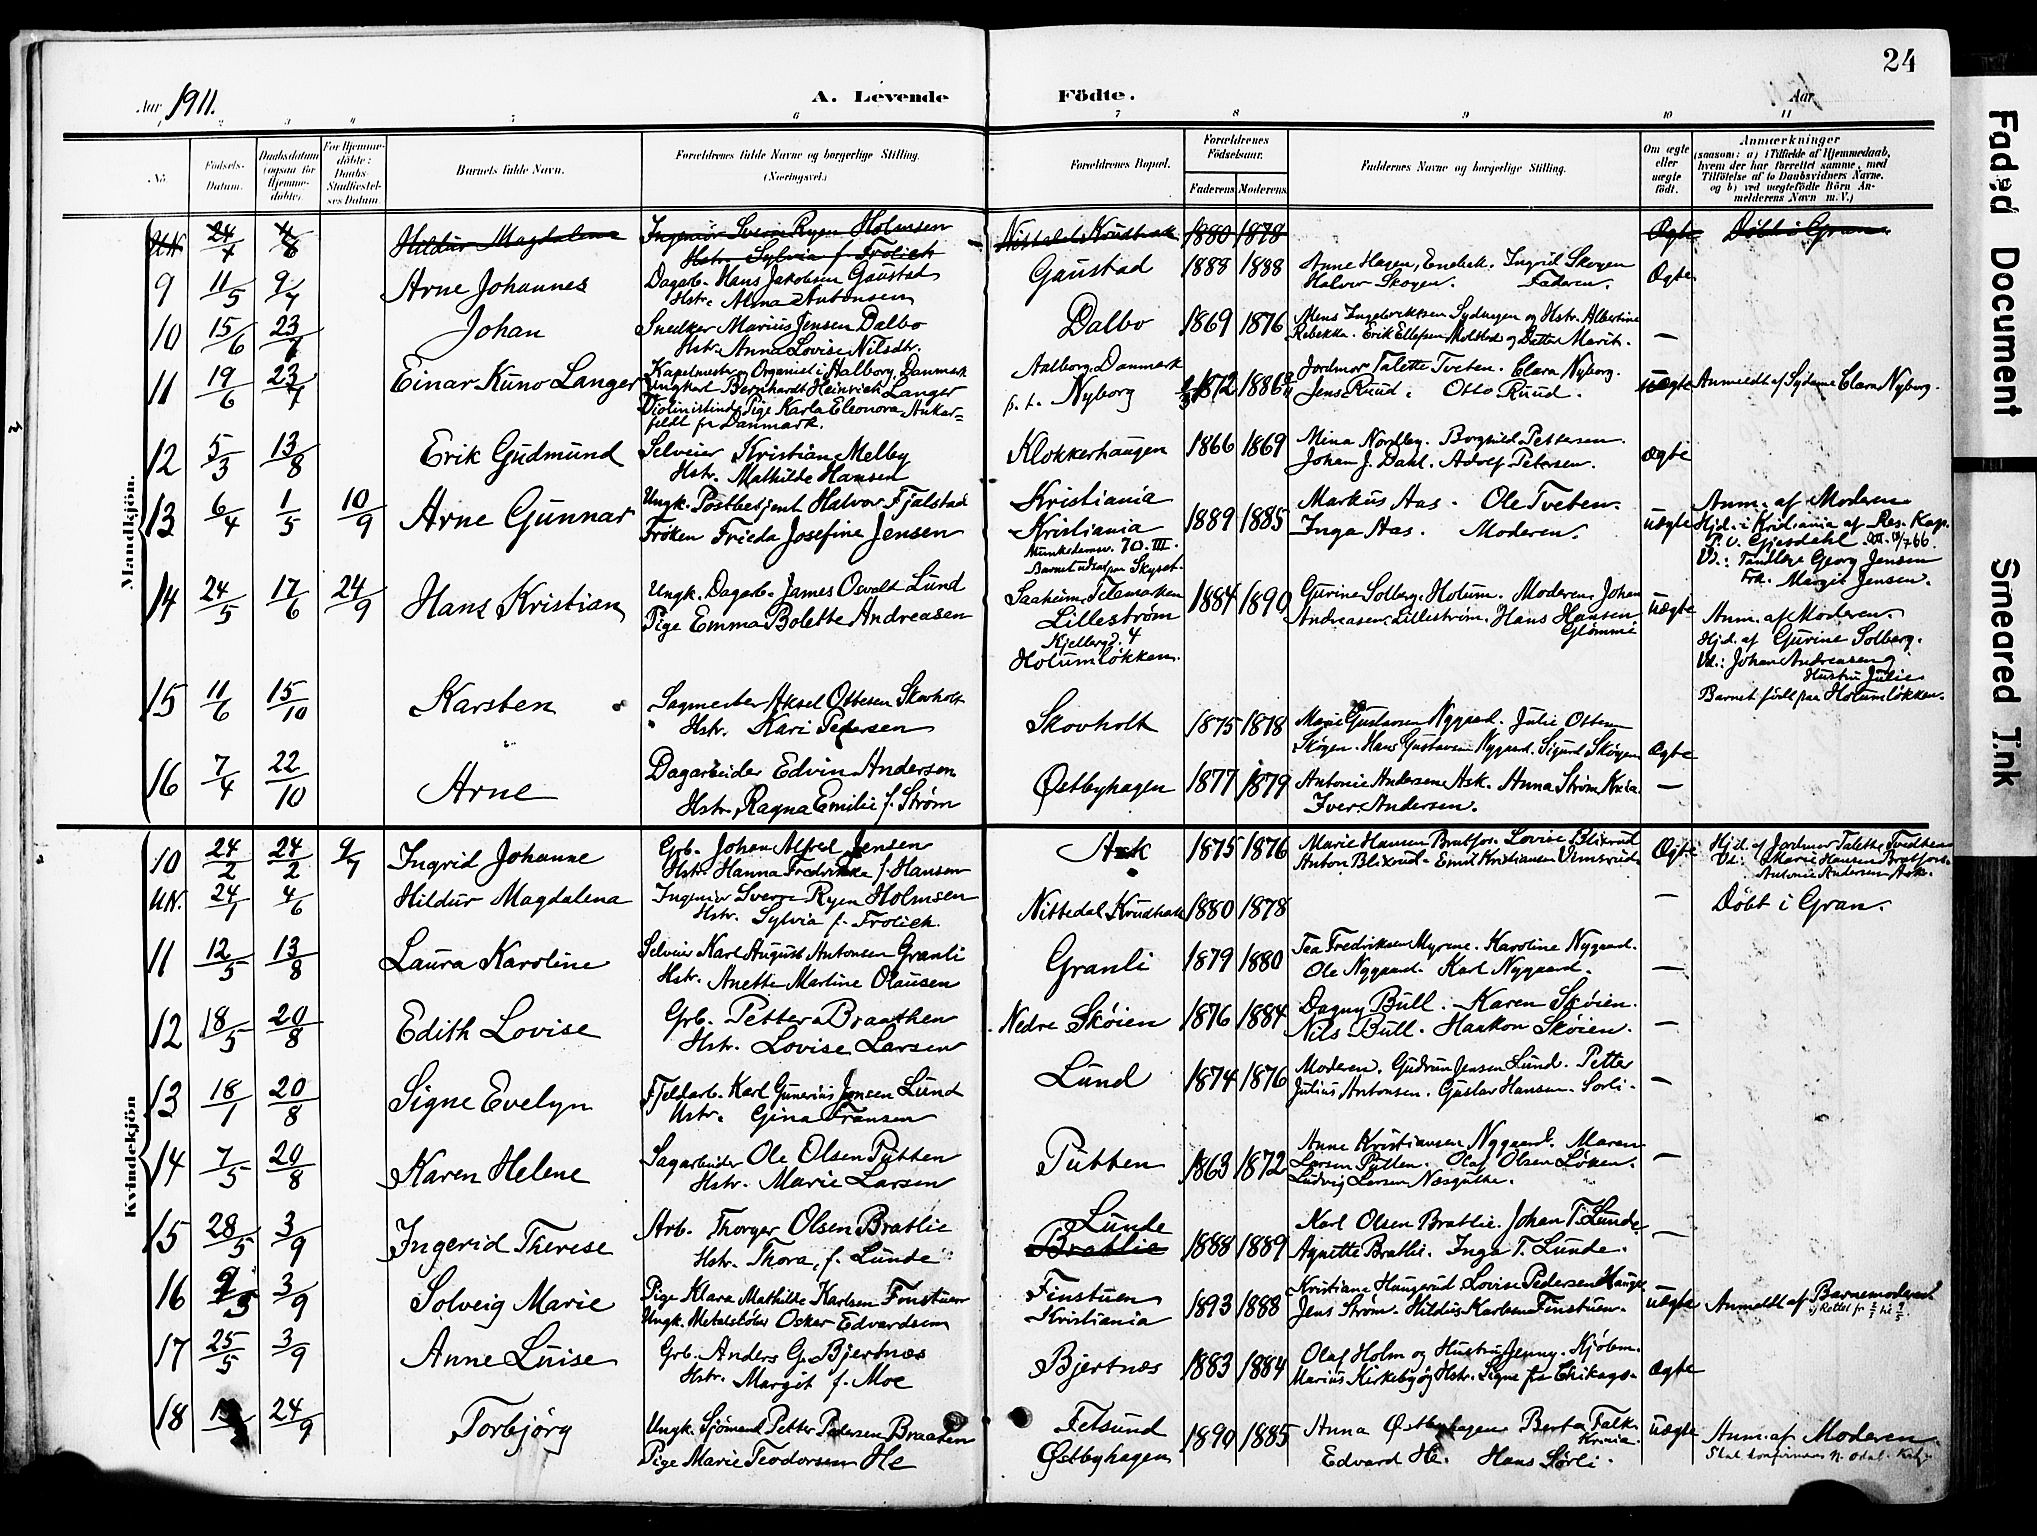 24
Aar 1911.
A. Levende Födte.
Aar
1 2 3 4 5 6 7 8 9 10 11
No
Födsels-Datum.
Daabsdatum (ogsaa for Hjemmedöbte).
For Hjemmedöbte: Daabs-Stadfæstelses Datum.
Barnets fulde Navn.
Forældrenes fulde Navne og borgerlige Stilling.
(Næringsvei.)
Forældrenes Bopæl.
Forældrenes Födselsaar.
Faderens. Moderens.
Faddernes Navne og borgerlige Stilling.
Om ægte eller uægte födt.
Anmærkninger
(saasom: a) i Tilfælde af Hjemmedaab, hvem der har forrettet samme, med Tilföielse af to Daabsvidners Navne, og b) ved uægtefödte Börn Anmelderens Navn m. V.)
Mandkjön.
24/4 Hildur Magdalene Ingeniør Sverre Ryen Holmsen 1880 1878 Ægte Døbt i Gran
Hstr. Sylvia f. Frolich
9 11/5 9/7 Arne Johannes Dagarb. Hans Jakobsen Gaustad Gaustad 1888 1888 Anne Hagen, Ingrid Skogen Ægte
Hstr. Alma Antonsen Halvor Skogen. Faderen.
10 15/6 23/7 Johan Snedker Marius Jensen Dalbo Dalbo 1869 1876 og Hstr. Albertine —
Hstr. Anna Lovise Nilsdtr. Rebekka. Erik Ellefsen Molstad og Datter Marit.
11 19/6 23/7 Einar Kuno Langer Kapelmester og Organist i Aalborg, Danmark Aalborg, Danmark 1872 1886 Jordmor Talette Tveten. Clara Nyborg. uægte Anmeldt af Sydame Clara Nyborg.
Ungkarl Bernhardt Heinrich Langer p. t. Nyborg Jens Ruud. Otto Ruud.
Violinistinde Pige Karla Eleonora Ankar=
feldt fr Danmark.
12 5/3 13/8 Erik Gudmund Selveier Kristian Melby Klokkerhaugen 1866 1869 Mina Nordby. Borghild Pettersen. Ægte
Hstr. Mathilde Hansen Johan J. Dahl. Adolf Petersen.
13 6/4 1/5 10/9 Arne Gunnar Ungk. Postbetjent Halvor Fjalstad Kristiania 1889 1885 Markus Aas. Ole Tveten. uægte Anm. af Moderen
Frøken Frieda Josefine Jensen Kristiania Inga Aas. Moderen. Hjd. i Kristiania af Res. Kap.
Munkedamsv. 70. III. P. O. Gjesdahl
Vd.: Tandlæge Georg Jensen
Frk. Margit Jensen.
14 24/5 17/6 24/9 Hans Kristian Ungk. Dagarb. James Osvald Lund Saaheim, Telemarken 1884 1890 Gurine Solberg, Holum. Moderen. Johan uægte Anm. af Moderen.
Pige Emma Bolette Andreasen Lillestrøm Andreasen, Lillestrøm. Hans Hansen Hjd. af Gurine Solberg.
Kjellerg. 4 Vd.: Johan Andreasen og
Holumløkken. Hustru Julie
Barnet født paa Holumløkken.
15 11/6 15/10 Karsten Sagmester Aksel Ottesen Skovholt Skovholt 1875 1878 Marie Gustavsen Nygaard. Julie Ottesen Ægte
Hstr. Kari Petersen Skogen. Hans Gustavsen Nygaard. Sigurd Skogen
16 7/4 22/10 Arne Dagarbeider Edvin Andersen Østbyhagen 1877 1879 Antonie Andersen Ask. Anna Strøm Kr.ia. —
Hstr. Ragna Emilie f. Strøm Iver Andersen.
Kvindekjön
10 24/2 24/2 9/7 Ingrid Johanne Grb. Johan Alfred Jensen Ask 1875 1876 Marie Hansen Bratfos. Lovise Blixrud Ægte Hjd. af Jordmor Talette Tvedten
Hstr. Hanna Fredrikke f. Hansen Anton Blixrud. Emil Kristiansen Vd.: Marie Hansen Bratfoss
Antonie Andersen Ask.
UN. 24/1 4/6 Hildur Magdalena Ingeniør Sverre Ryen Holmsen Nittedal Krudtværk 1880 1878 — Døbt i Gran.
Hstr. Sylvia f. Frolich.
11 12/5 13/8 Laura Karoline Selveier Karl August Antonsen Granli Granli 1879 1880 Tea Fredriksen Myrene. Karoline Nygaard. —
Hstr. Anette Martine Olausen Ole Nygaard. Karl Nygaard.
12 18/5 20/8 Edith Lovise Grb. Petter Braathen Nedre Skøien 1876 1884 Dagny Bull. Karen Skøien. —
Hstr. Lovise Larsen Nils Bull. Haakon Skøien.
13 18/1 20/8 Signe Evelyn Fjeldarb. Karl Gunerius Jensen Lund Lund 1874 1876 Moderen. Gudrun Jensen Lund. Petter —
Hstr. Gina Fransen Julius Antonsen. Gustav Hansen. Sørli.
14 7/5 20/8 Karen Helene Sagarbeider Ole Olsen Putten Putten 1863 1872 Anne Kristiansen Nygaard. Maren —
Hstr. Marie Larsen Larsen Putten. Olaf Olsen Løken.
Ludvig Larsen
15 28/5 3/9 Ingerid Therese Arb. Thorger Olsen Bratlie Lunde 1888 1889 Karl Olsen Bratlie. Johan T. Lunde. —
Hstr. Thora, f. Lunde Bratlie Agnette Bratlie. Inga T. Lunde.
16 3/9 Solveig Marie Pige Klara Mathilde Karlsen Finstuen Finstuen 1893 1888 Kristiane Haugerud Lovise Pedersen Hauger uægte Anmeldt af Barnemoderen
Ungk. Metalstøber Oskar Edvardsen Kristiania Jens Strøm. Hildur Karlsen Finstuen.
17 25/5 3/9 Anne Luise Grb. Anders G. Bjertnæs Bjertnæs 1883 1884 Olaf Holm og Hustru Jenny. Kjøbm. Ægte
Hstr. Margit f. Moe Marius Kirkeby og Hstr. Signe fra Chikago.
18 24/9 Torbjørg Ungk. Sjømand Petter Pedersen Braaten Fetsund 1890 1885 Anna Østbyhagen Berta Falk uægte Anm. af Moderen.
Pige Marie Teodorsen He Østbyhagen Edvard He. Hans Sørli.
Faded Document
Smeared Ink